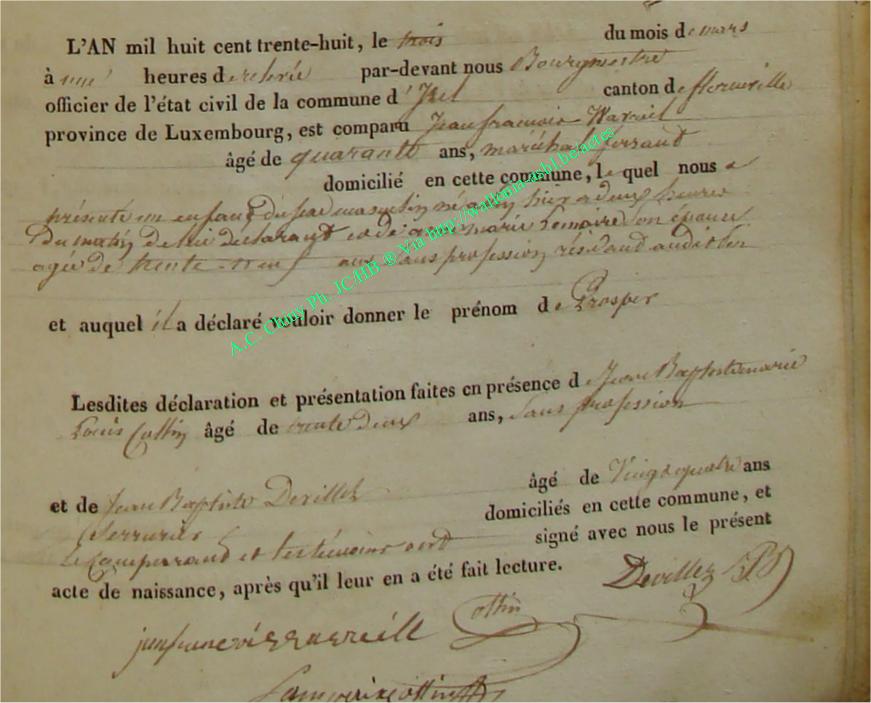 L'AN mil huit cent trente-huit, le trois du mois de mars
à une heures de relevée par-devant nous Bourgmestre
officier de l'état civil de la commune d'Izel canton de florenville
province de Luxembourg, est comparu Jean françois Wavreil
âgé de quarante ans, maréchal ferrant
domicilié en cette commune, lequel nous a
présenté un enfant du sexe masculin né hier a deux heures
du matin de lui déclarant et de marie Lemaire son épouse
agée de trente-neuf ans sans profession résidant audit lieu
et auquel il a déclaré vouloir donner le prénom de Prosper
Lesdites déclaration et présentation faites en présence de Jean Baptiste marie
Louis Collin âgé de trente deux ans, sans profession
et de Jean Baptiste Devillez âgé de Vingt quatre ans
Serrurier domiciliés en cette commune, et
le Comparant et les témoins ont signé avec nous le présent
acte de naissance, après qu'il leur en a été fait lecture.
Devillez JB
Collin
A.C. Chiny Ph. JC-HB ® Via http://wallonia-asbl.be/actes